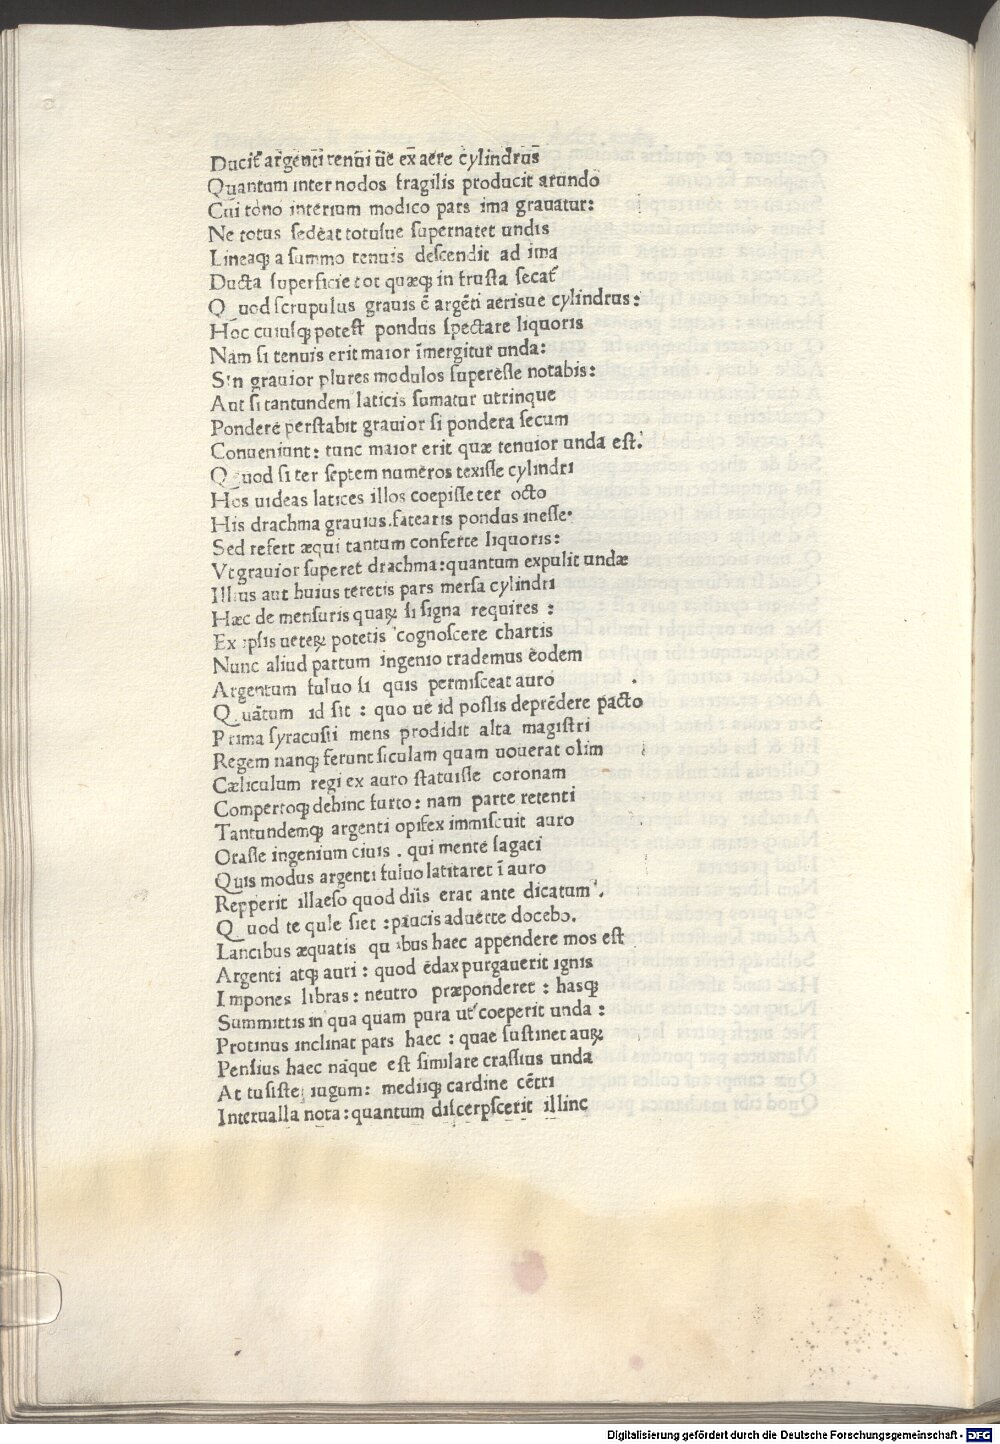 Ducit᷎ argēti tenui ūe ex aere cylindrus̄
Quantum inter nodos fragilis producit arundo
Cui tono interium modico pars ima grauatur:
Ne totus sedeat totusue supernatet undis
Lineaqꝫ a summo tenuis descendit ad ima
Ducta superficie tot quæqꝫ in frusta secat᷎
Quod scrupulus grauis ē argēti aerisue cylindrus:
Hoc cuiusqꝫ potest pondus spectare liquoris
Nam si tenuis erit maior īmergitur unda:
Sin grauior plures modulos superesse notabis:
Aut si tantundem laticis sumatur utrinque
Pondere perstabit grauior si pondera secum
Conueniunt: tunc maior erit quæ tenuior unda est.
Quod si ter septem numeros texisse cylindri
Hos uideas latices illos coepisse ter octo
His drachma grauius.fatearis pondus inesse.
Sed refert æqui tantum conferte liquoris:
Vt grauior superet drachma:quantum expulit undæ
Illius aut huius teretis pars mersa cylindri
Hæc de mensuris quaꝝ si signa requires :
Ex ipsis ueteꝝ poteris cognoscere chartis
Nunc aliud partum ingenio trademus eodem
Argentum fuluo si quis permisceat auro
Quātum id sit : quo ue id possis deprēdere pacto
Prima syracusii mens prodidit alta magistri
Regem nanqꝫ ferunt siculam quam uouerat olim
Cæliculum regi ex auro statuisse coronam
Compertoqꝫ dehinc furto: nam parte retenti
Tantundemqꝫ argenti opifex immiscuit auro
Orasse ingenium ciuis . qui mente sagaci
Quis modus argenti fuluo latitaret ī auro
Repperit illaeso quod diis erat ante dicatum.
Quod te qule siet :paucis aduerte docebo.
Lancibus æquatis quibus haec appendere mos est
Argenti atqꝫ auri : quod edax purgauerit ignis
Impones libras: neutro præponderet : hasqꝫ
Summittis in qua quam pura ut coeperit unda :
Protinus inclinat pars haec : quae sustinet auꝝ
Pensius haec nāque est similare crassius unda
At tu siste iugum: mediiqꝫ cardine cētri
Interualla nota:quantum discerpscerit illinc
Digitalisierung gefördert durch die Deutsche Forschungsgemeinschaft - DFG